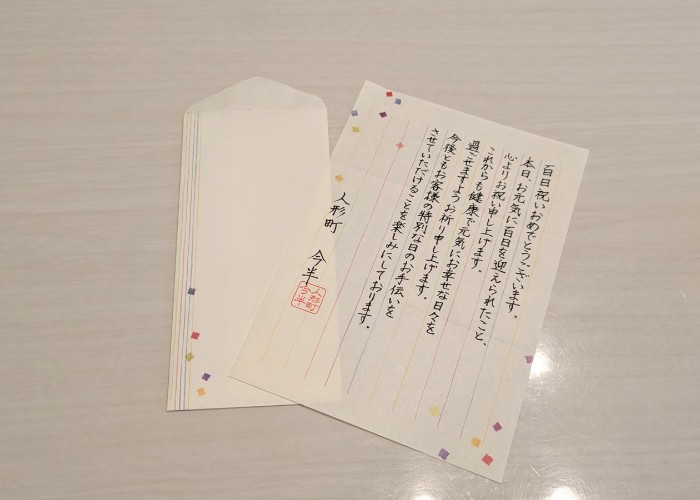 百日祝いおめでとうございます。
本日、お元気に百日を迎えられたこと、
心よりお祝い申し上げます。
これからも健康で元気にお幸せな日々を
過ごせますようお祈り申し上げます。
今後ともお客様の特別な日のお手伝いを
させていただけることを楽しみにしております。
人形町 今半
人形町
今半